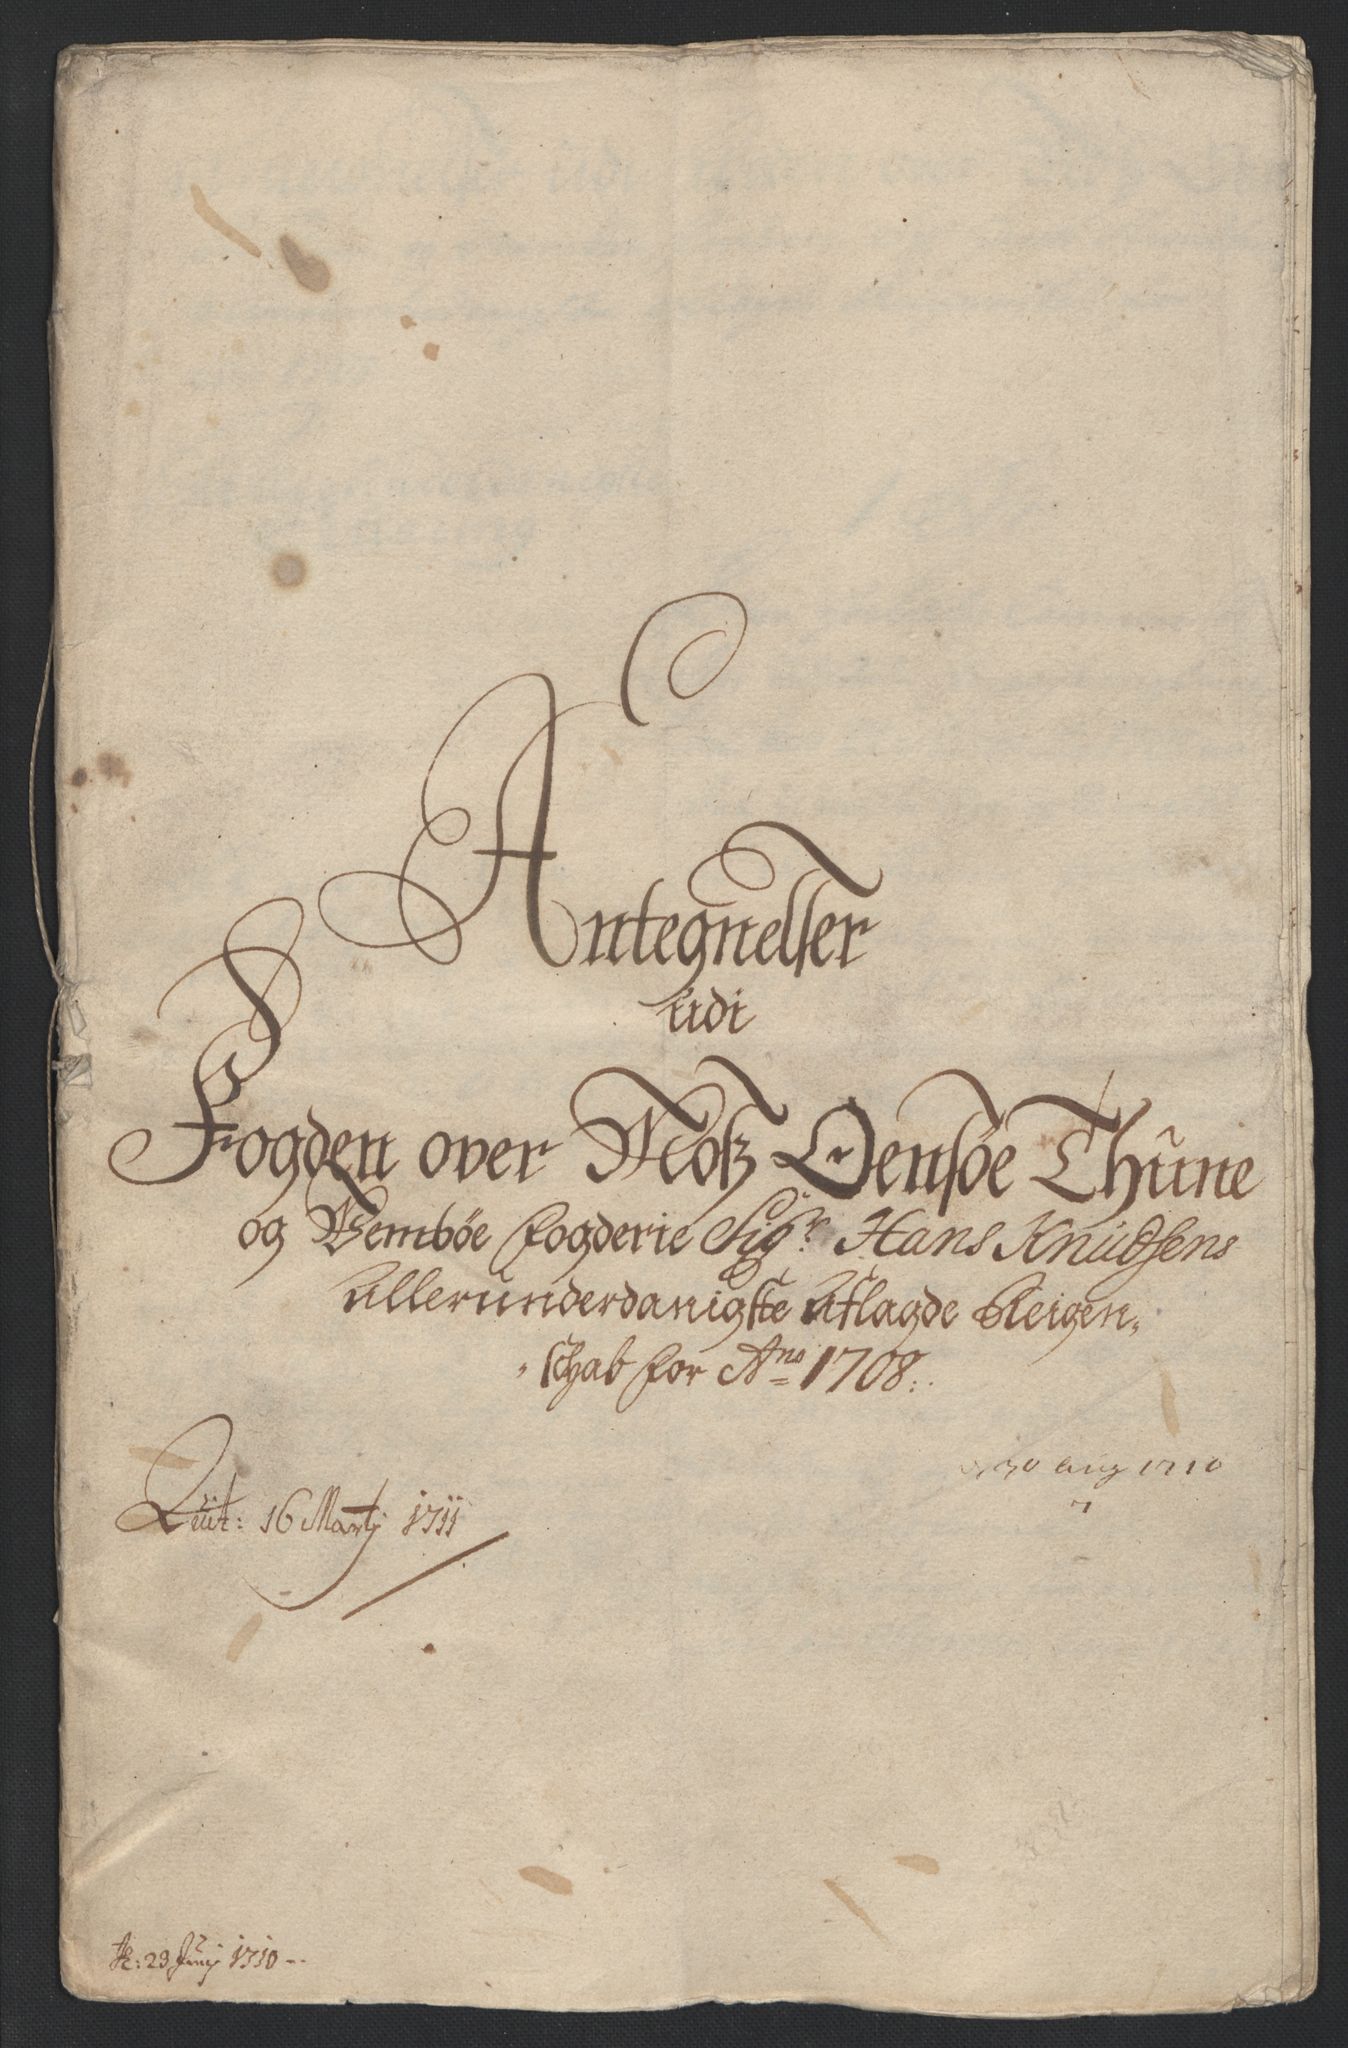 Antegnelser
udi
Fogden over Moß Oensøe Thune
og Wembøe fogderie Sigr: Hans Knudsens
allerunderdanigste aflagde Reigen„
„schab for Ano 1708:.
Qvit: 16 Martj 1711
30 aug 1710
R: 23 Junj 1710